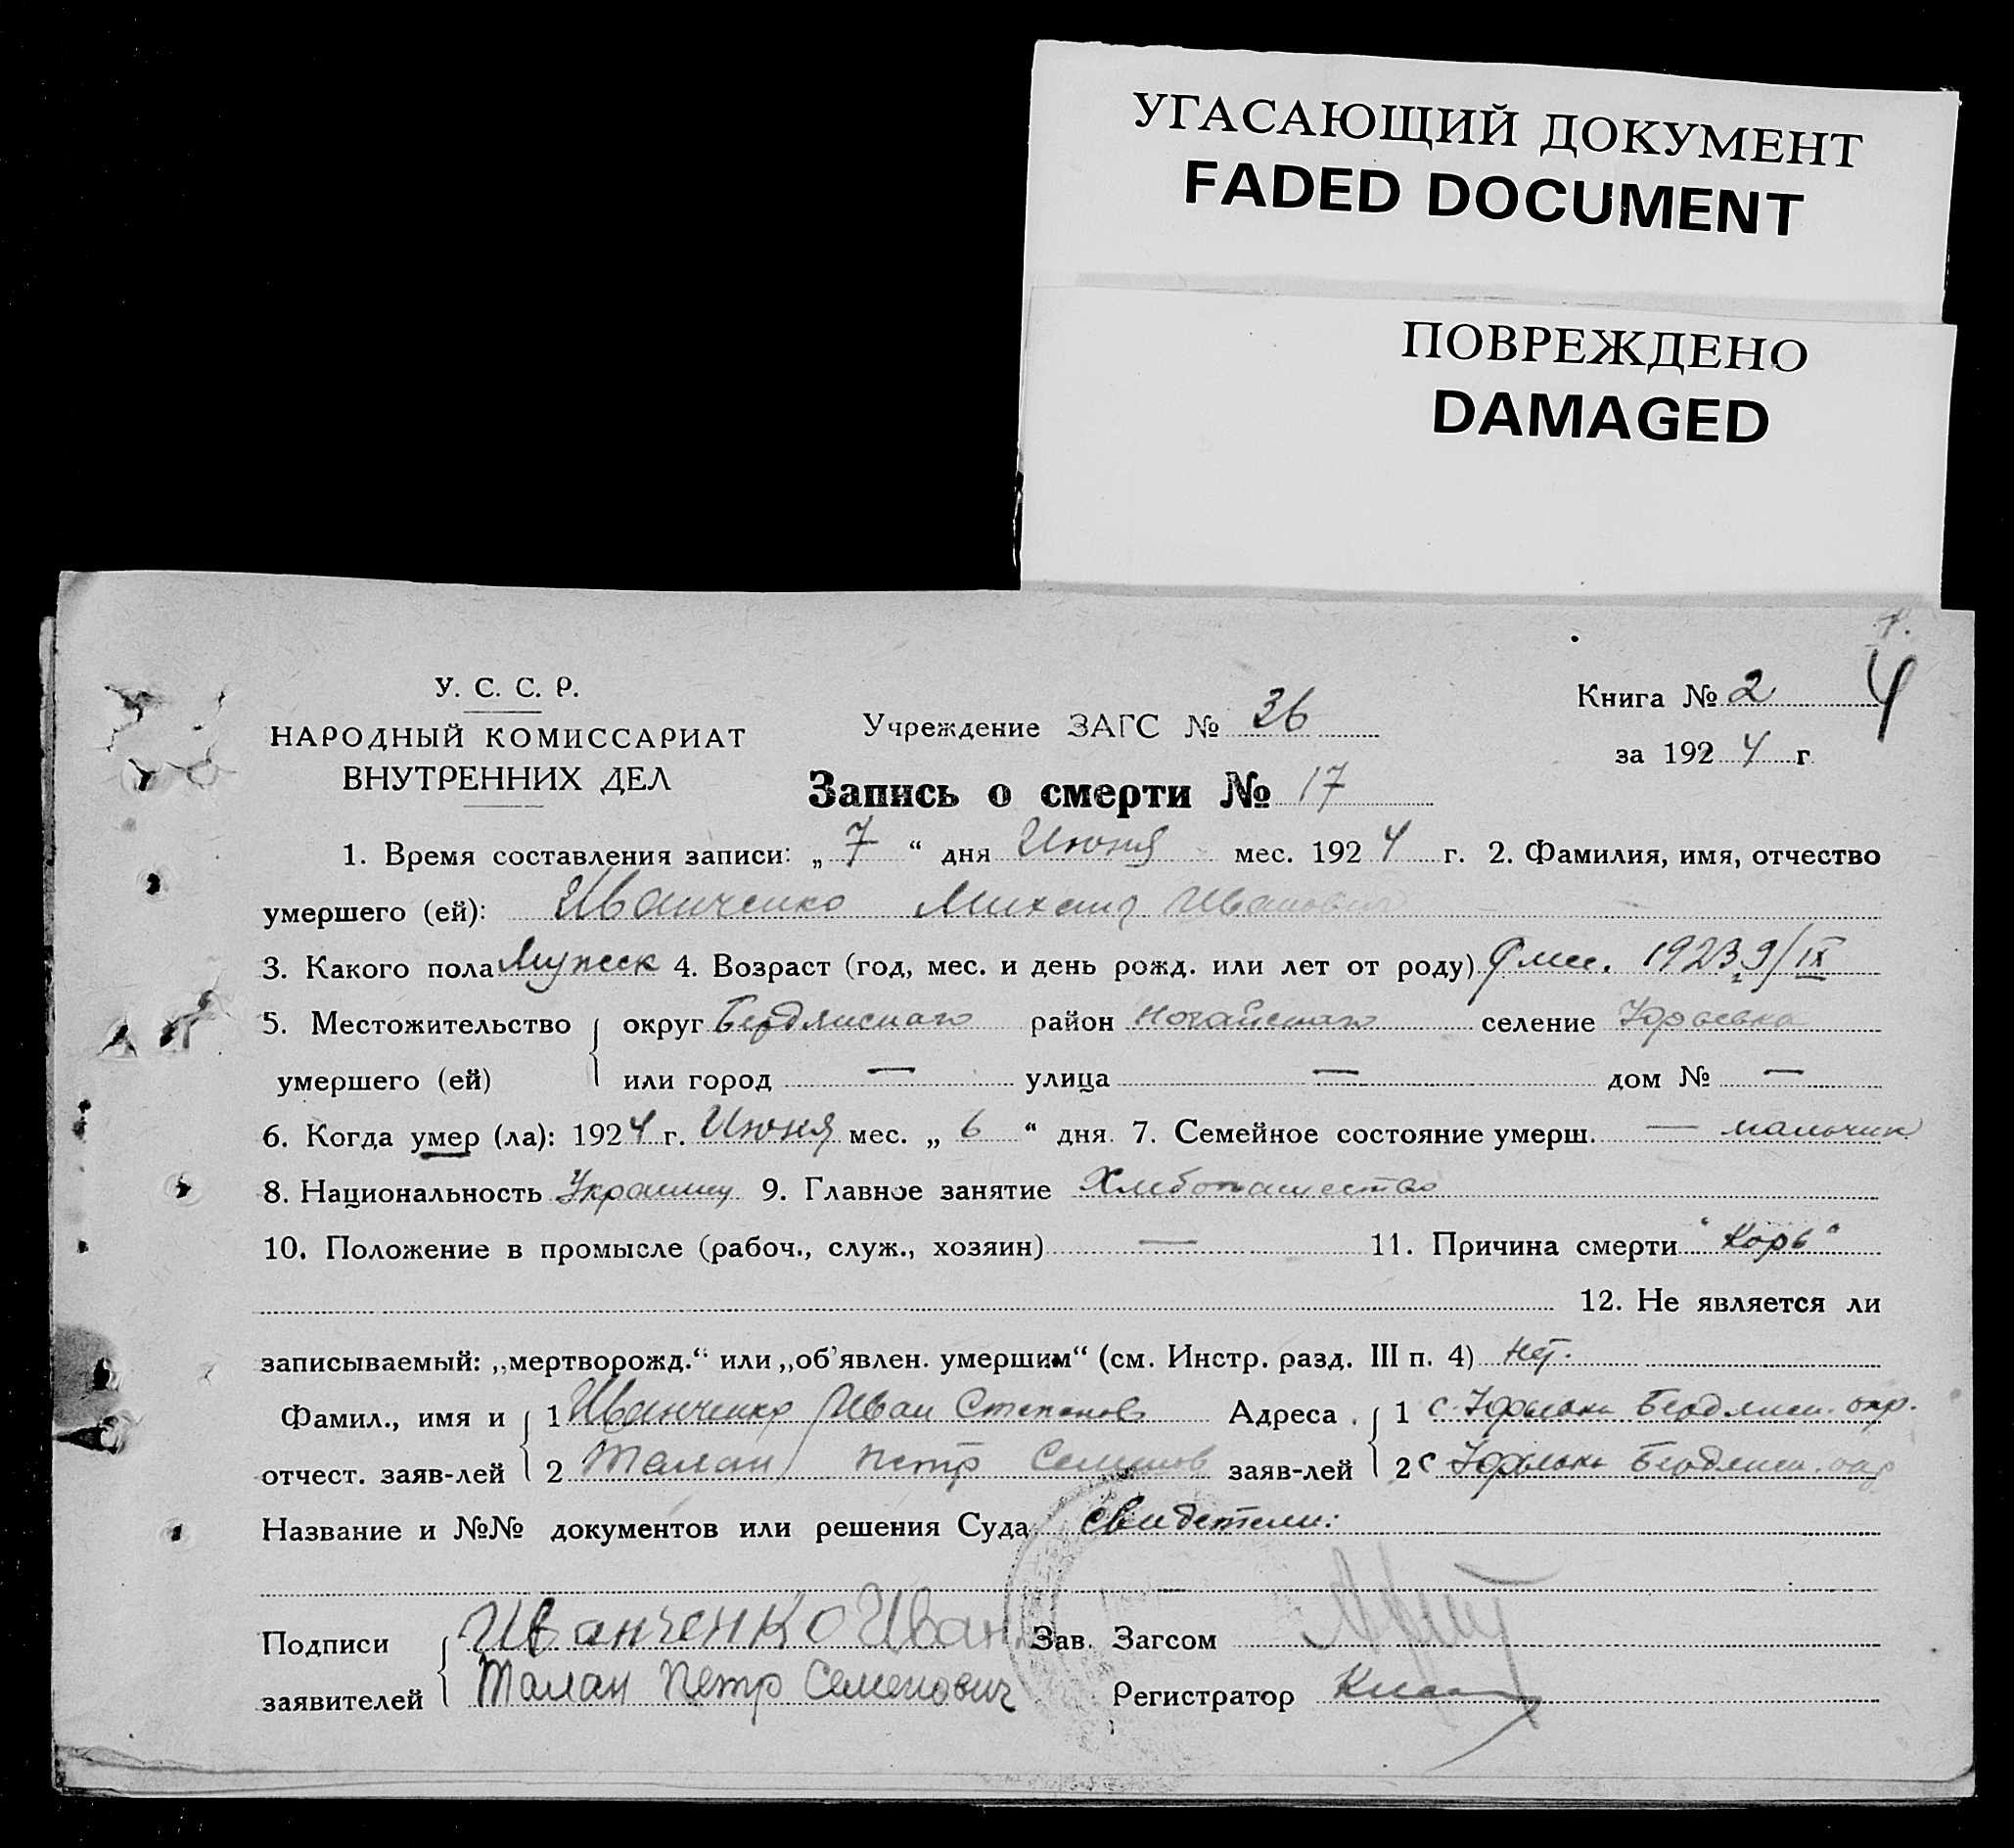 УГАСАЮЩИЙ ДОКУМЕНТ
FADED DOCUMENT
ПОВРЕЖДЕНО
DAMAGED
У. С. С. Р.
НАРОДНЫЙ КОМИССАРИАТ
ВНУТРЕННИХ ДЕЛ
Учреждение ЗАГС № 36
Книга № 2 4
за 1924 г.
Запись о смерти № 17
1. Время составления записи: „7“ дня Июня мес. 1924 г. 2. Фамилия, имя, отчество
умершего (ей): Иванченко Михаил Иванович
3. Какого пола Мужеск 4. Возраст (год, мес. и день рожд. или лет от роду) 9 мес. 1923 9/IX
5. Местожительство округ Бердянского район Ногайского селение Юрьевка
умершего (ей) или город — улица — дом № —
6. Когда умер (ла): 1924 г. Июня мес. „6“ дня. 7. Семейное состояние умерш. — мальчик
8. Национальность Украинец 9. Главное занятие Хлебопашество
10. Положение в промысле (рабоч., служ., хозяин) — 11. Причина смерти "Корь"
12. Не является ли
записываемый: „мертворожд.“ или „об'явлен. умершим“ (см. Инстр. разд. III п. 4) нет.
Фамил., имя и 1 Иванченко Иван Степанов Адреса 1 с. Юрьевка Бердянск. окр.
отчест. заяв-лей 2 Талан Петр Семенов заяв-лей 2 с Юрьевка Бердянск. окр
Название и №№ документов или решения Суда свидетели:
Подписи Иванченко Иван Зав. Загсом
заявителей Талан Петр Семенович Регистратор